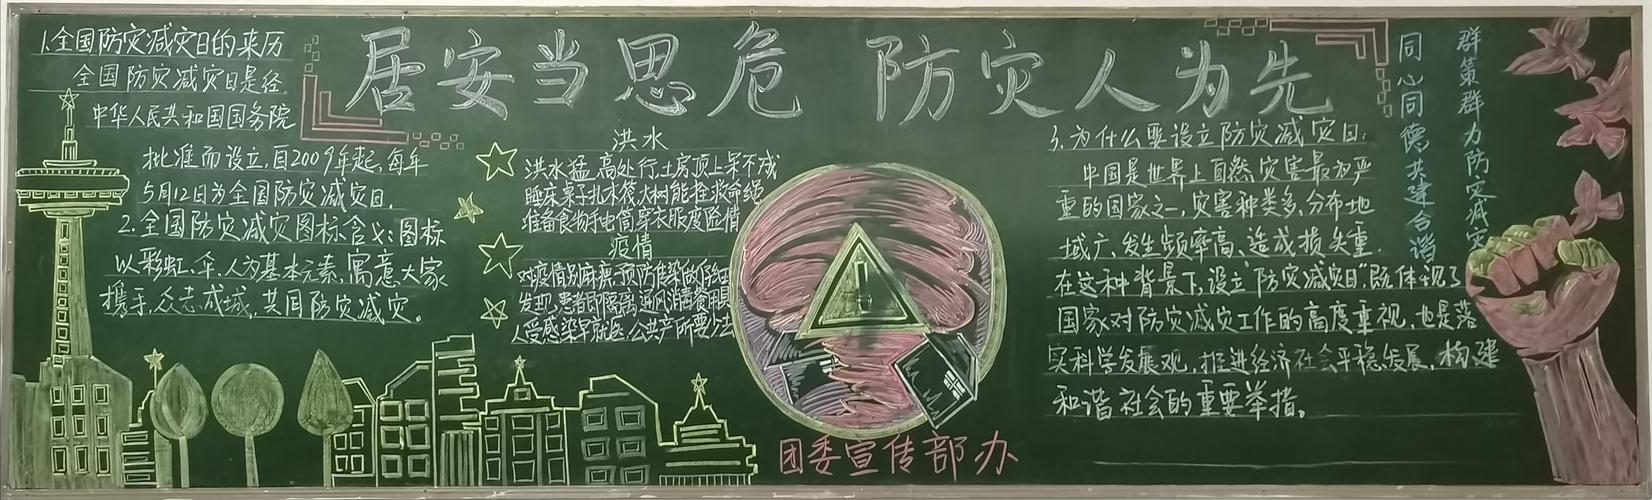 居安当思危 防灾人为先
1.全国防灾减灾日的来历
全国防灾减灾日是经
中华人民共和国国务院
批准而设立,自2009年起,每年
5月12日为全国防灾减灾日。
2.全国防灾减灾图标含义:图标
以彩虹、伞、人为基本元素,寓意大家
携手,众志成城,共同防灾减灾。
洪水
洪水猛,高处行,土房顶上呆不成
睡床桌子扎木筏,大树能拴救命绳
准备食物手电筒,穿衣度险情
疫情
对疫情别麻痹,预防传染做仔细
发现患者即隔离,消毒食用具
人受感染早就医,公共所要少去
3.为什么要设立防灾减灾日:
中国是世界上自然灾害最为严
重的国家之一,灾害种类多、分布地
域广、发生频率高、造成损失重。
在这种背景下,设立“防灾减灾日”,既体现了
国家对防灾减灾工作的高度重视,也是落
实科学发展观,推进经济社会平稳发展,构建
和谐社会的重要举措。
群策群力防灾减灾
同心同德共建合谐
团委宣传部办